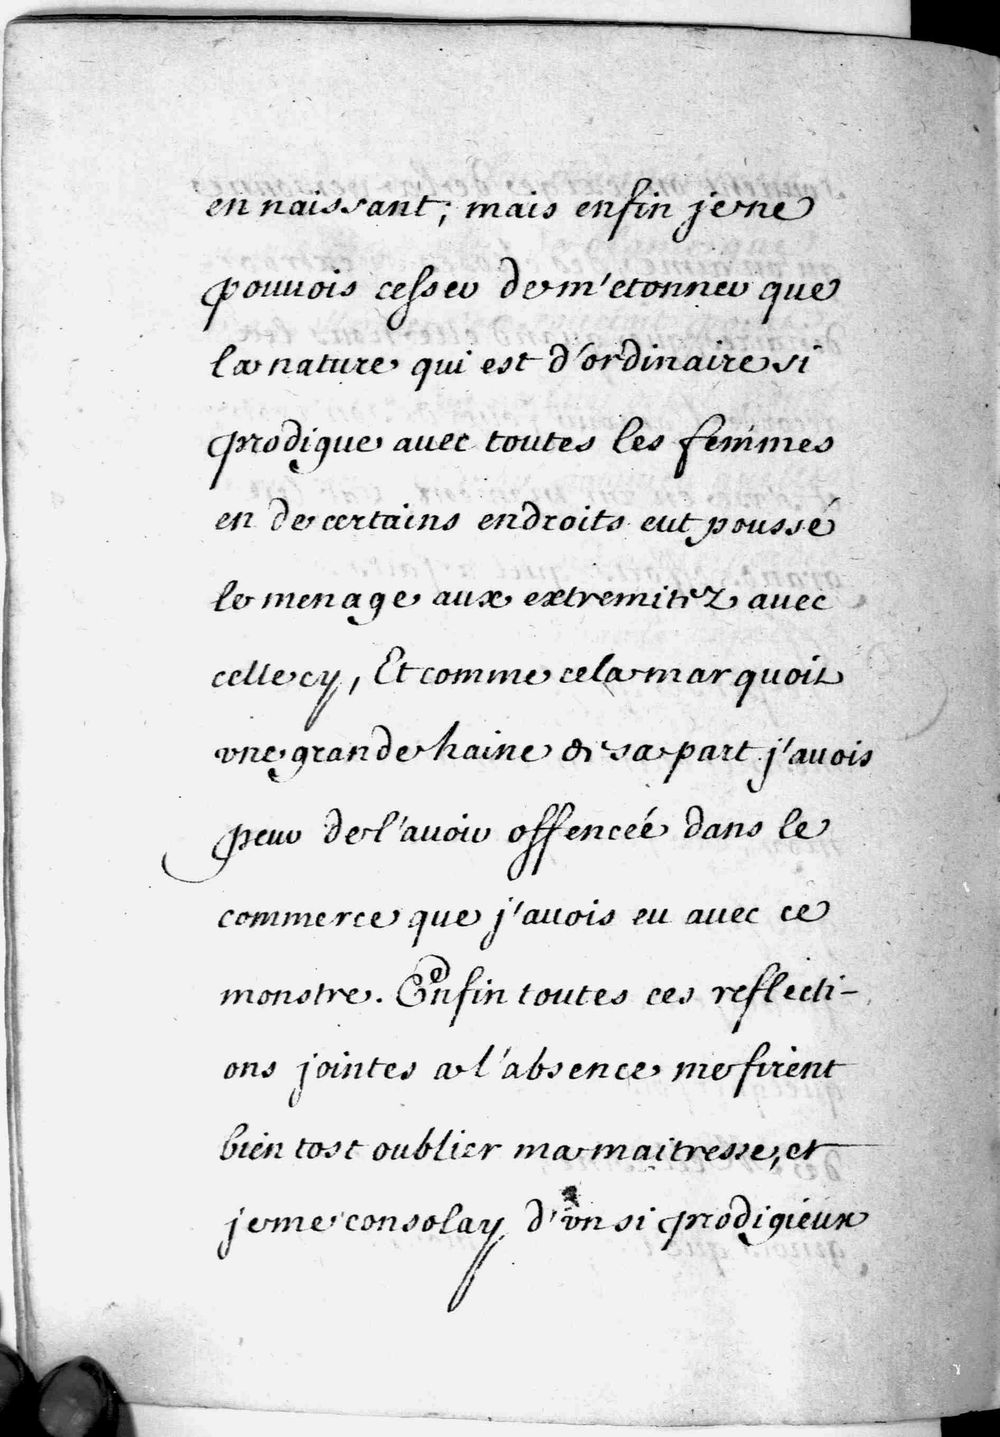 en naissant; mais enfin je ne
pouuois cesser de m'etonner que
la nature qui est d'ordinaire si
prodigue auec toutes les femmes
en de certains endroits eut poussé
le menage aux extremitez auec
celle cy, Et comme cela marquoit
vne grande haine de sa part j'auois
peur de l'auoir offenceé dans le
commerce que j'auois eu auec ce
monstre. Enfin toutes ces reflecti-
ons jointes a l'absence me firent
bien tost oublier ma maitresse, et
je me consolay d'vn si prodigieux